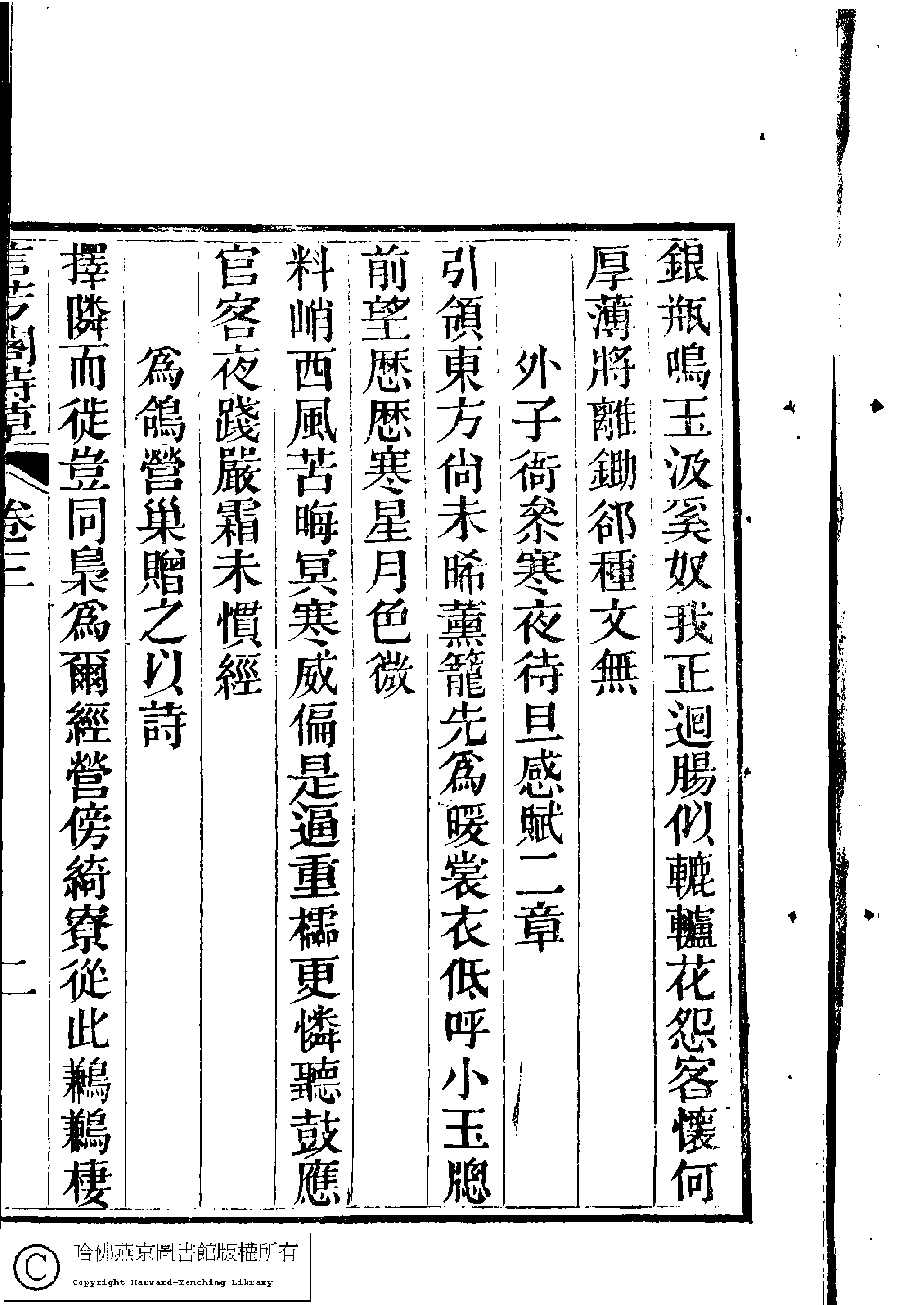 銀瓶鳴玉汲奚奴我正迴腸似轆轤花怨客懷何
厚薄將離鋤郤種文無
外子衙叅寒夜待旦感賦二章
引領東方尙未晞薰籠先爲暖裳衣低呼小玉牕
前望歷歷寒星月色微
料峭西風苦晦冥寒威偏是逼重襦更憐聽鼓應
官客夜踐嚴霜未慣經
爲鴿營巢贈之以詩
擇隣而徙豈同梟爲爾經營傍綺寮從此鶼鶼棲
閣詩草 卷三 二
哈佛燕京圖書館版權所有
Copyright Harvard-Yenching Library